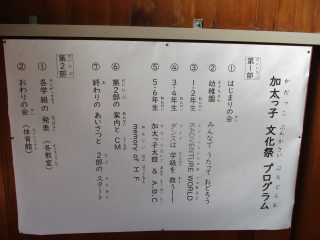 かだっこ ぶんかさい ぷろぐらむ
加太っ子 文化祭 プログラム
だいいちぶ
第1部
① はじまりの会
② 幼稚園 みんなで うたって おどろう
③ 1・2年生 KADVENTURE WORLD
④ 3・4年生 ダンスは 学級を 救う!!
⑤ 5・6年生 加太っ子太鼓 & A,B,C
memory of H F
⑥ 第2部の 案内と CM
⑦ 終わりの あいさつと 2部の スタート
だいにぶ
第2部
① 各学級の 発表 (各教室)
② おわりの会 (体育館)